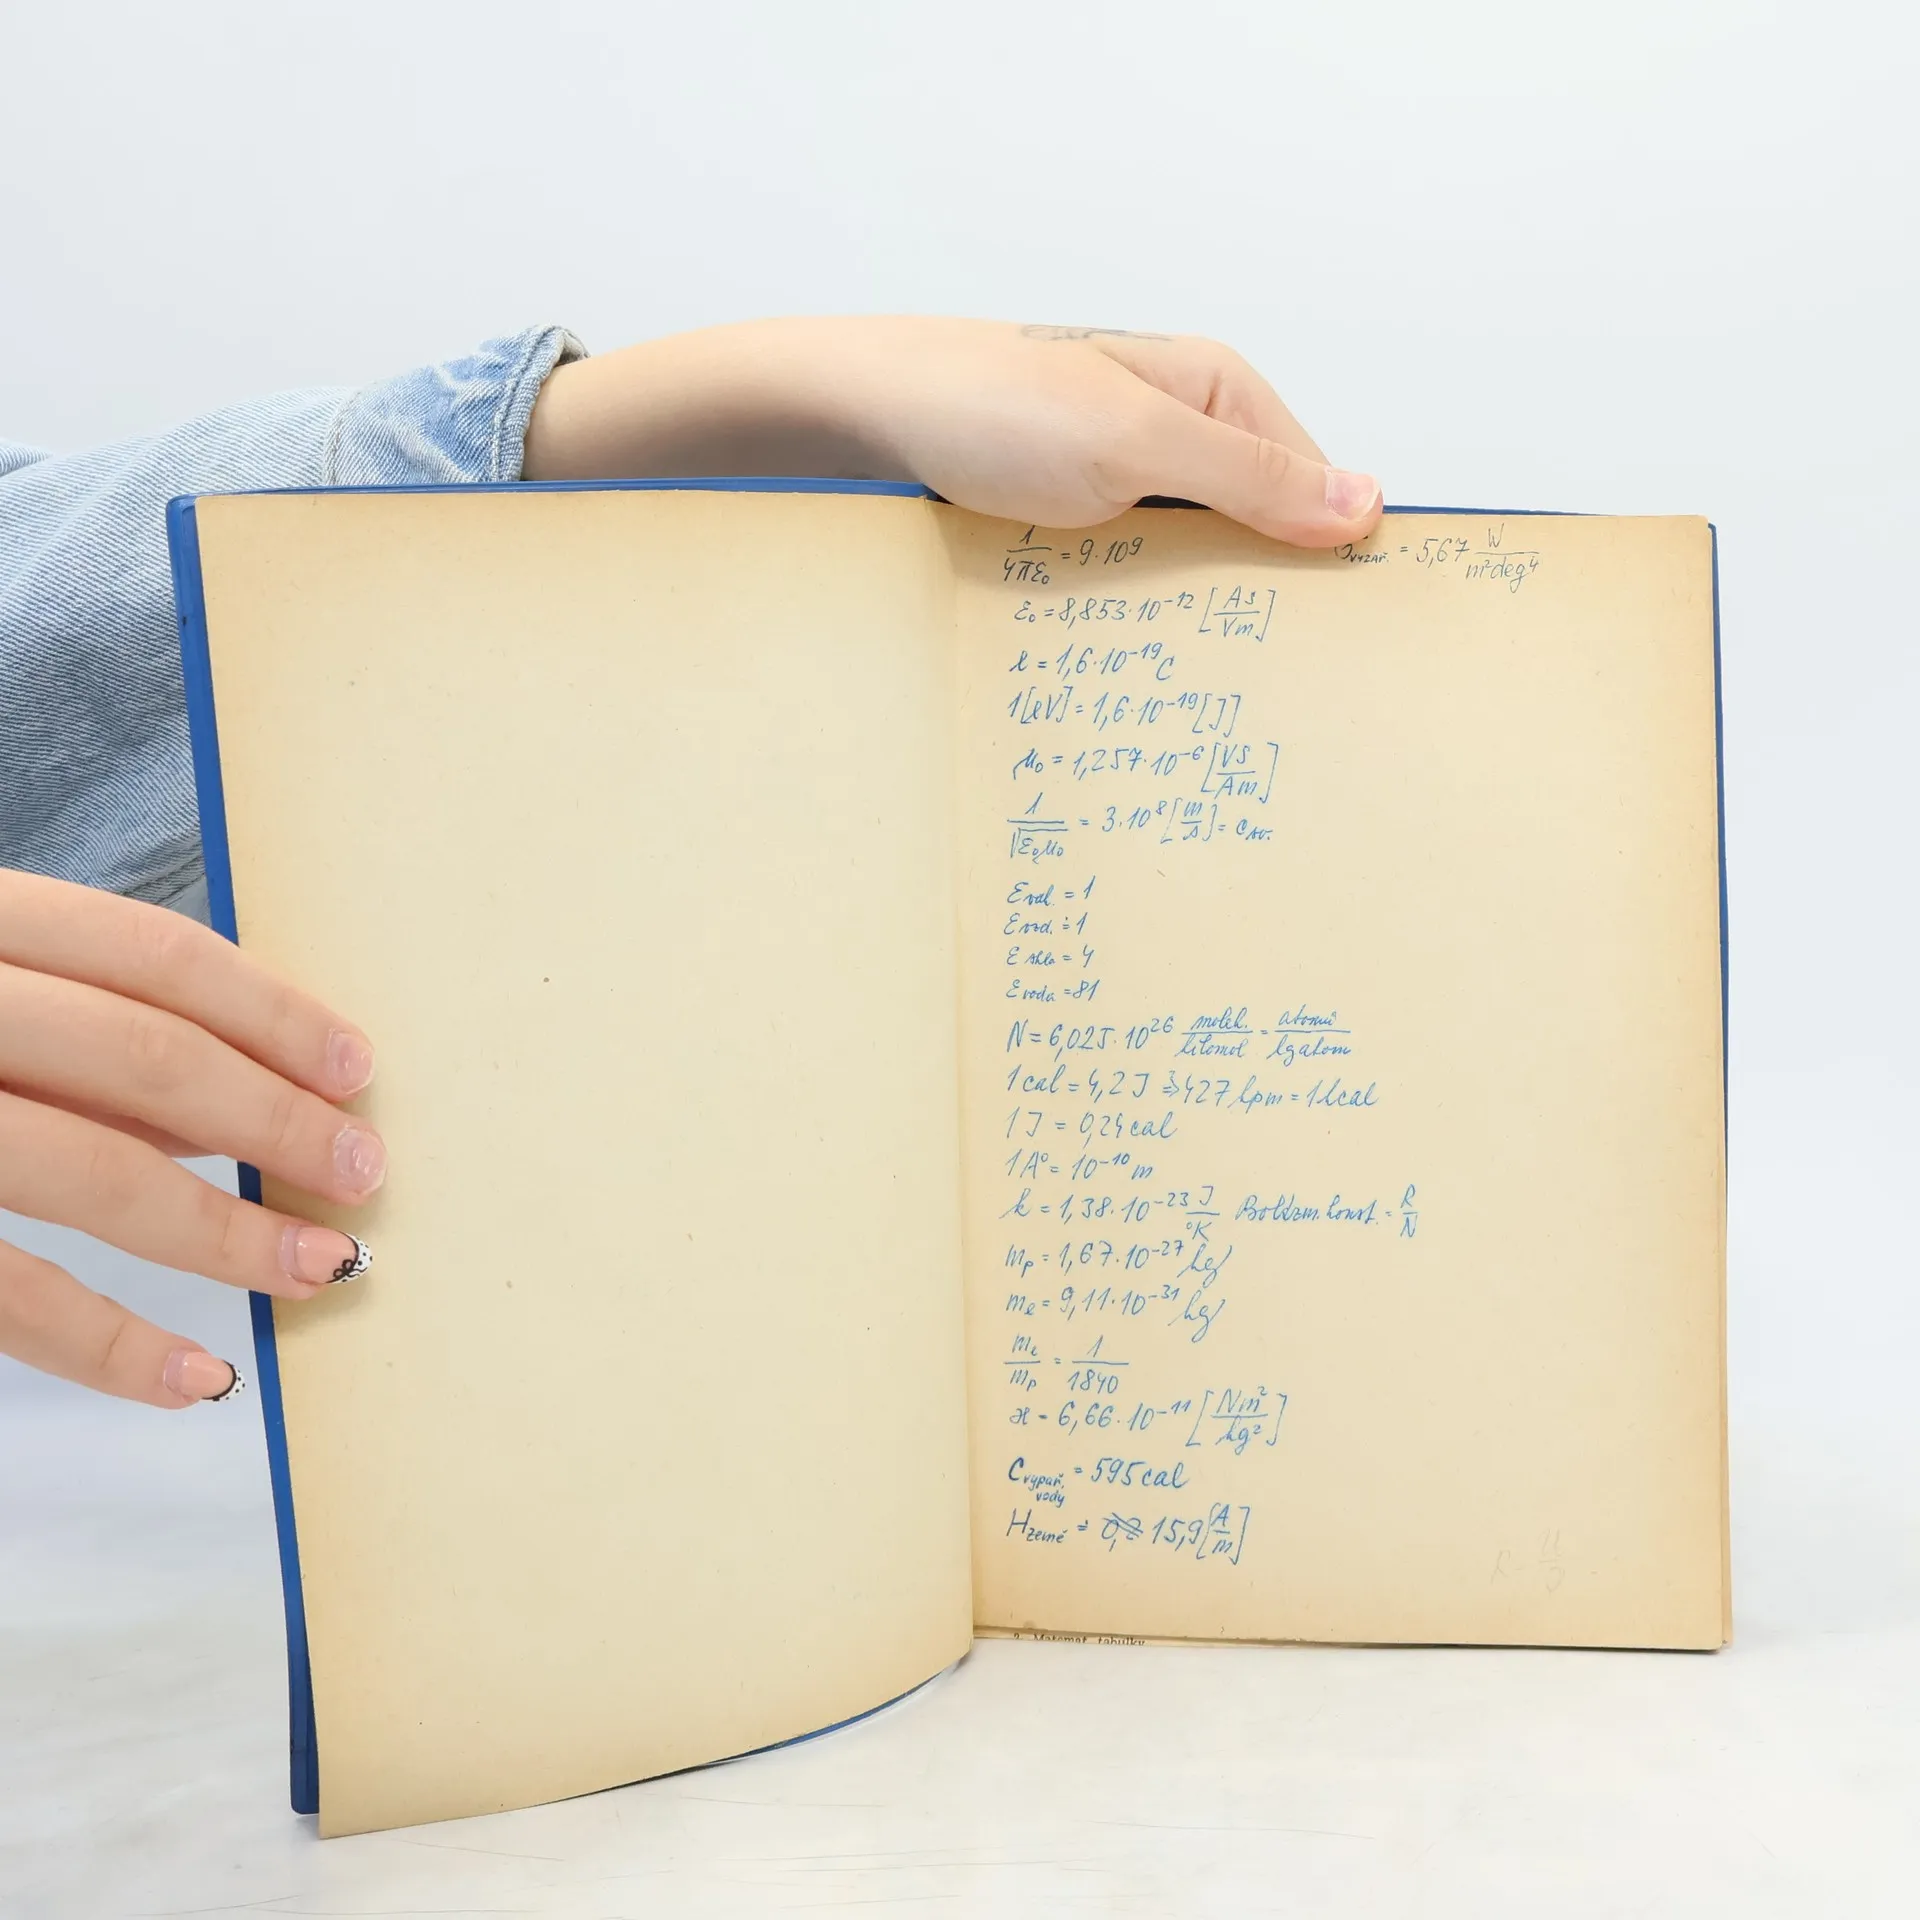 1/4πε₀ = 9·10⁹ σ_vyzař. = 5,67 W/m²deg⁴
ε₀ = 8,853·10⁻¹² [As/Vm]
e = 1,6·10⁻¹⁹ C
1[eV] = 1,6·10⁻¹⁹ [J]
μ₀ = 1,257·10⁻⁶ [VS/Am]
1/√ε₀μ₀ = 3·10⁸ [m/s] = c sv.
ε vak. = 1
ε vzd. ≐ 1
ε skla = 4
ε voda = 81
N = 6,025·10²⁶ molek./kilomol = atomů/kgatom
1 cal = 4,2 J ⇒ 427 kpm = 1 kcal
1 J = 0,24 cal
1 A° = 10⁻¹⁰ m
k = 1,38·10⁻²³ J/°K Boltzm. konst. = R/N
mₚ = 1,67·10⁻²⁷ kg
mₑ = 9,11·10⁻³¹ kg
mₑ/mₚ = 1/1840
ϰ = 6,66·10⁻¹¹ [Nm²/kg²]
C vypař. vody = 595 cal
H země ≐ 0,2 15,9 [A/m]
2 Matemat. tabulky